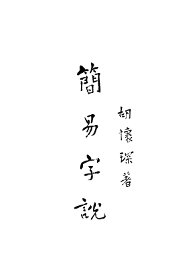 胡懷琛著
簡易字說